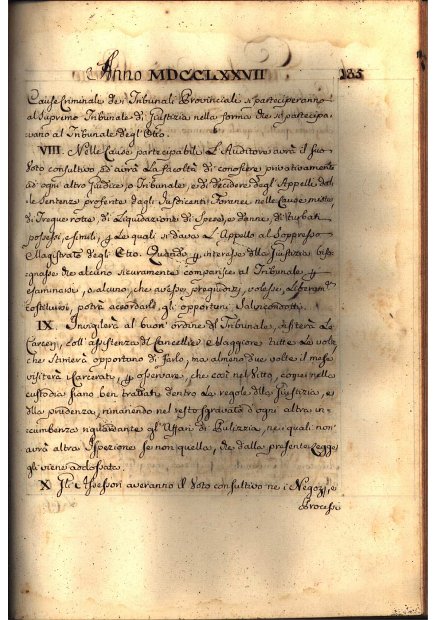 Anno MDCCLXXVII 185
Cause Criminale de i Tribunali Provinciale si parteciperanno
al Supremo Tribunale di Giustizia nella forma che si partecipa-
vano al Tribunale degl'Otto.
VIII. Nelle Cause partecipabili L'Auditore avrà il suo
Voto consultivo ed avrà La facoltà di conoscere privativamente
ad ogni altro Giudice, o Tribunale, e di decidere degl'Appelli dal-
le Sentenze proferite dagli Jusdicenti Foranei nelle Cause miste
di Tregue rotte di Liquidazione di Spese, e danni, di turbati
possessi, e simili, p. Le quali si dava L'Appello al Soppresso
Magistrato degli Otto. Quando p. interesse della Giustizia biso-
gnasse che alcuno sicuramente comparisse al Tribunale p.
esaminarsi, o alcuno che avesse pregiudizj, volesse Liberam.te
costituirsi, potrà accordarli gli opportuni Salvicondotti.
IX. Invigilerà al buon'ordine del Tribunale, visiterà Le
Carceri, coll'assistenza di Cancelliere Maggiore tutte Le volte
che stimerà opportuno di farlo, ma almeno due volte il mese
visiterà i Carcerati, p. osservare, che così nel Vitto, come nella
custodia siano ben trattati dentro Le regole della Giustizia, e
della prudenza, rimanendo nel resto sgravato d'ogni altra in-
cumbenza riguardante gl'Affari di Pulizia, nei quali non
avrà altra Ispezione se non quella, che dalla presente Legge
gli viene addossata.
X. Gli Assessori averanno il Voto consultivo ne i Negozj, e
Processi